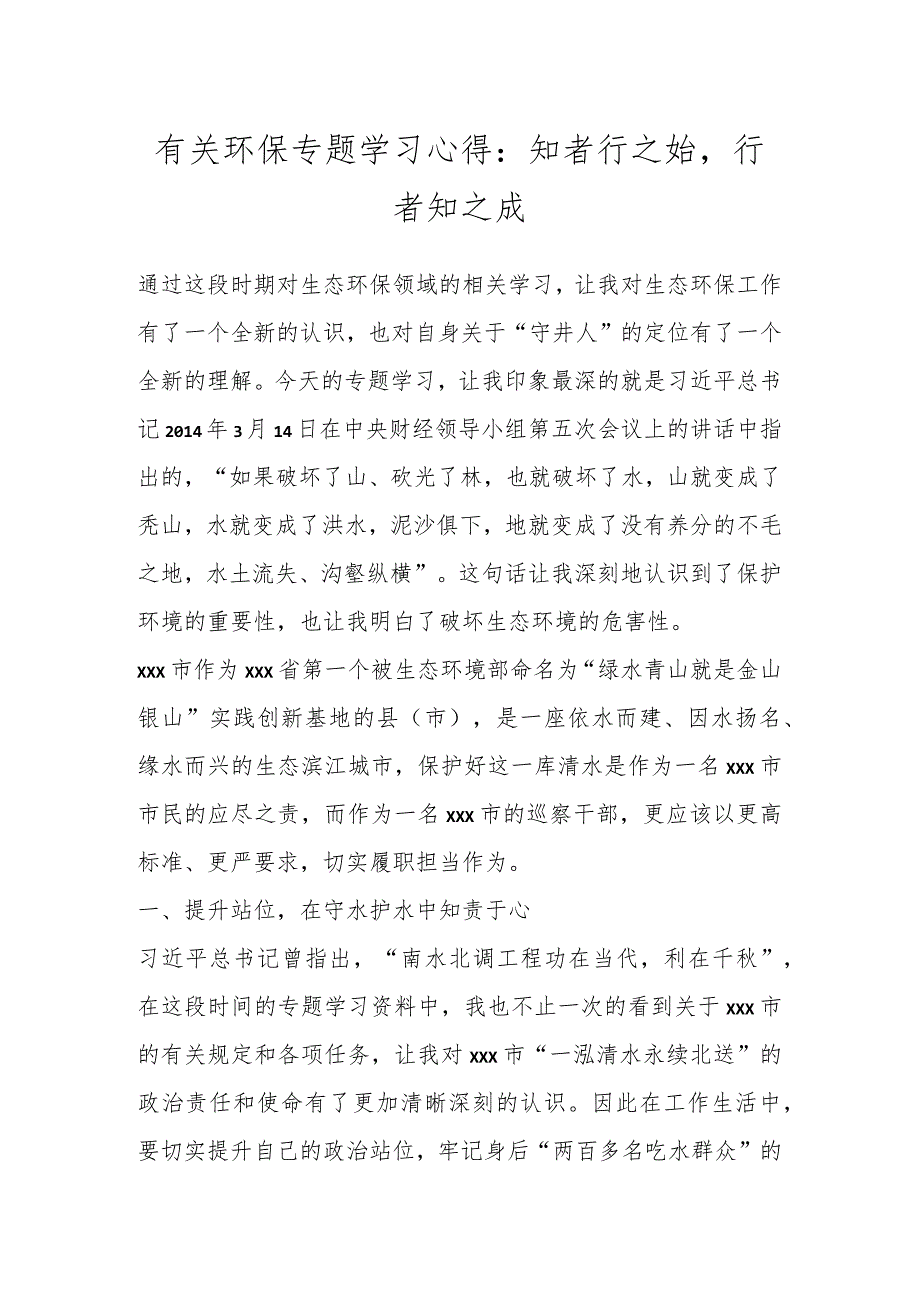 有关环保专题学习心得：知者行之始，行
者知之成
通过这段时期对生态环保领域的相关学习，让我对生态环保工作
有了一个全新的认识，也对自身关于“守井人”的定位有了一个
全新的理解。今天的专题学习，让我印象最深的就是习近平总书
记 2014 年 3 月 14 日在中央财经领导小组第五次会议上的讲话中指
出的，“如果破坏了山、砍光了林，也就破坏了水，山就变成了
秃山，水就变成了洪水，泥沙俱下，地就变成了没有养分的不毛
之地，水土流失、沟壑纵横”。这句话让我深刻地认识到了保护
环境的重要性，也让我明白了破坏生态环境的危害性。
xxx 市作为 xxx 省第一个被生态环境部命名为“绿水青山就是金山
银山”实践创新基地的县（市），是一座依水而建、因水扬名、
缘水而兴的生态滨江城市，保护好这一库清水是作为一名 xxx 市
市民的应尽之责，而作为一名 xxx 市的巡察干部，更应该以更高
标准、更严要求，切实履职担当作为。
一、提升站位，在守水护水中知责于心
习近平总书记曾指出，“南水北调工程功在当代，利在千秋”，
在这段时间的专题学习资料中，我也不止一次的看到关于 xxx 市
的有关规定和各项任务，让我对 xxx 市“一泓清水永续北送”的
政治责任和使命有了更加清晰深刻的认识。因此在工作生活中，
要切实提升自己的政治站位，牢记身后“两百多名吃水群众”的